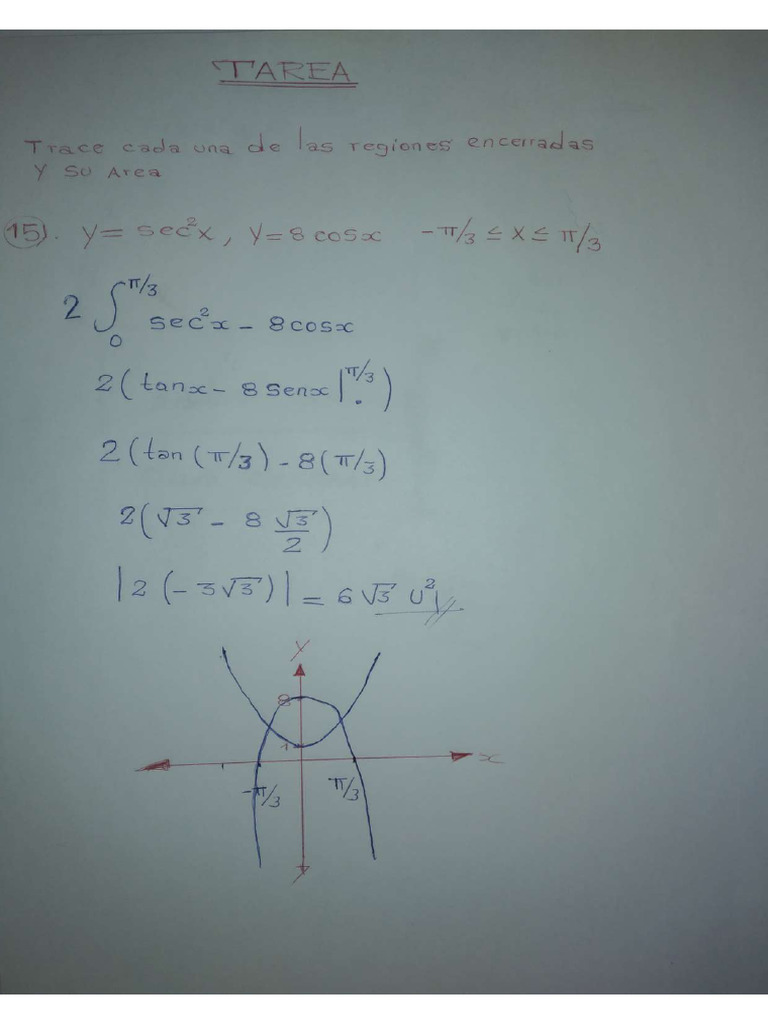 TAREA
Trace cada una de las regiones encerradas
Y su Area
15). y = sec²x, y = 8 cosx -π/3 ≤ x ≤ π/3
2 ∫₀^π/3 sec²x - 8cosx
2 ( tanx - 8 senx |₀^π/3 )
2 (tan (π/3) - 8(π/3)
2(√3 - 8 √3/2)
|2 (-3√3)| = 6√3 U²
Y
8
1
x
-π/3 π/3
y